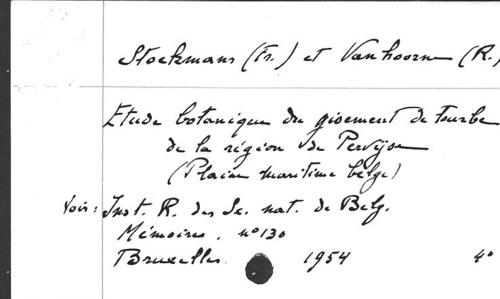 Stockmans (Fr.) et Vanhoorne (R.)
Etude botanique du gisement de tourbe
de la région de Pervijse
(Plaine maritime belge)
Voir: Inst. R. des Sc. nat. de Belg.
Mémoires. n° 130
Bruxelles 1954 4°